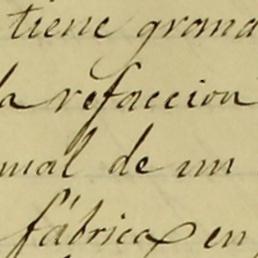 tiene grand
la refaccion
mal de un
fábrica en